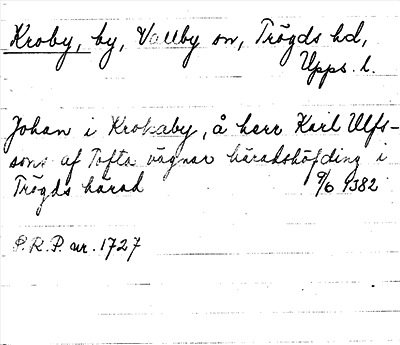 Kroby, by, Vallby sn, Trögds hd,
Upps. l.
Johan i Krokaby, å herr Karl Ulfs-
sons af Tofta vägnar häradshöfding i
Trögds härad 9/6 1382
S.R.P. nr. 1727